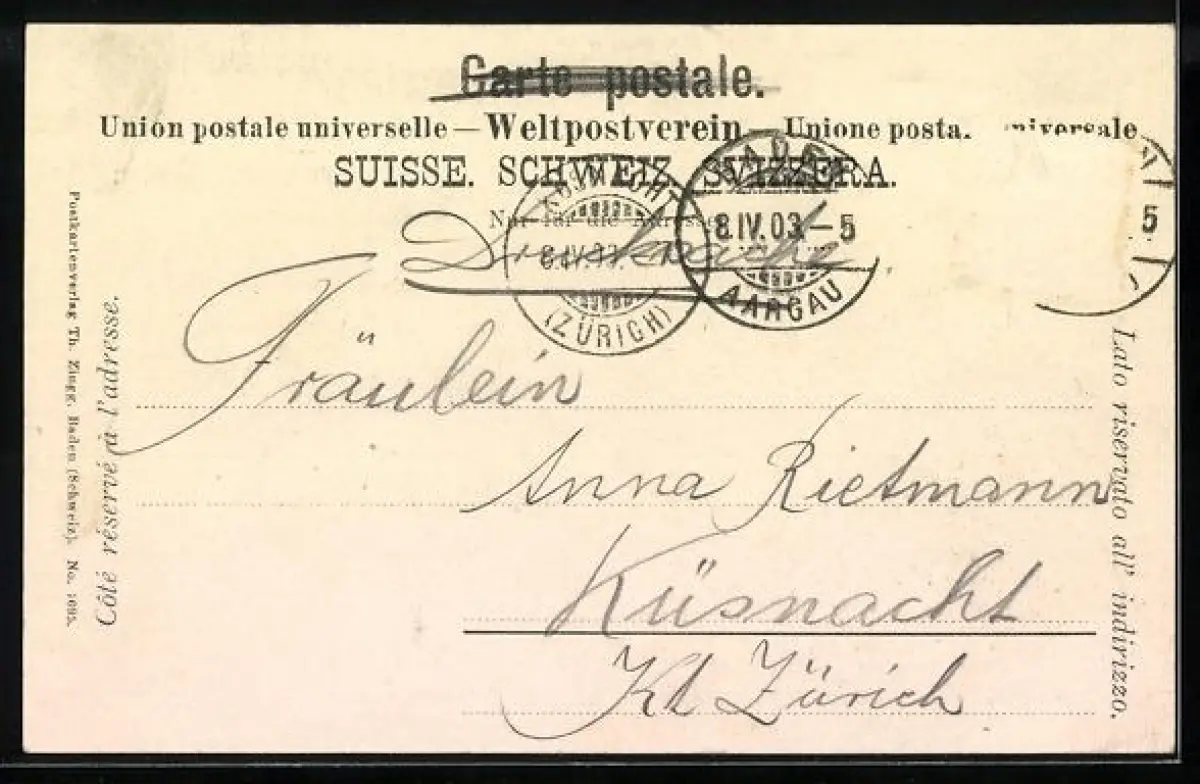 Carte postale.
Union postale universelle — Weltpostverein — Unione posta. universale
SUISSE. SCHWEIZ. SVIZZERA.
Nur für die Adresse
Drucksache
BADEN
8.IV.03.–5
AARGAU
KÜSNACHT
8.IV.03.
(ZÜRICH)
N
5
Fräulein
Anna Rietmann
Küsnacht
Kt Zürich
Côté réservé à l'adresse.
Lato riservato all' indirizzo.
Postkartenverlag Th. Zingg, Baden (Schweiz). No.